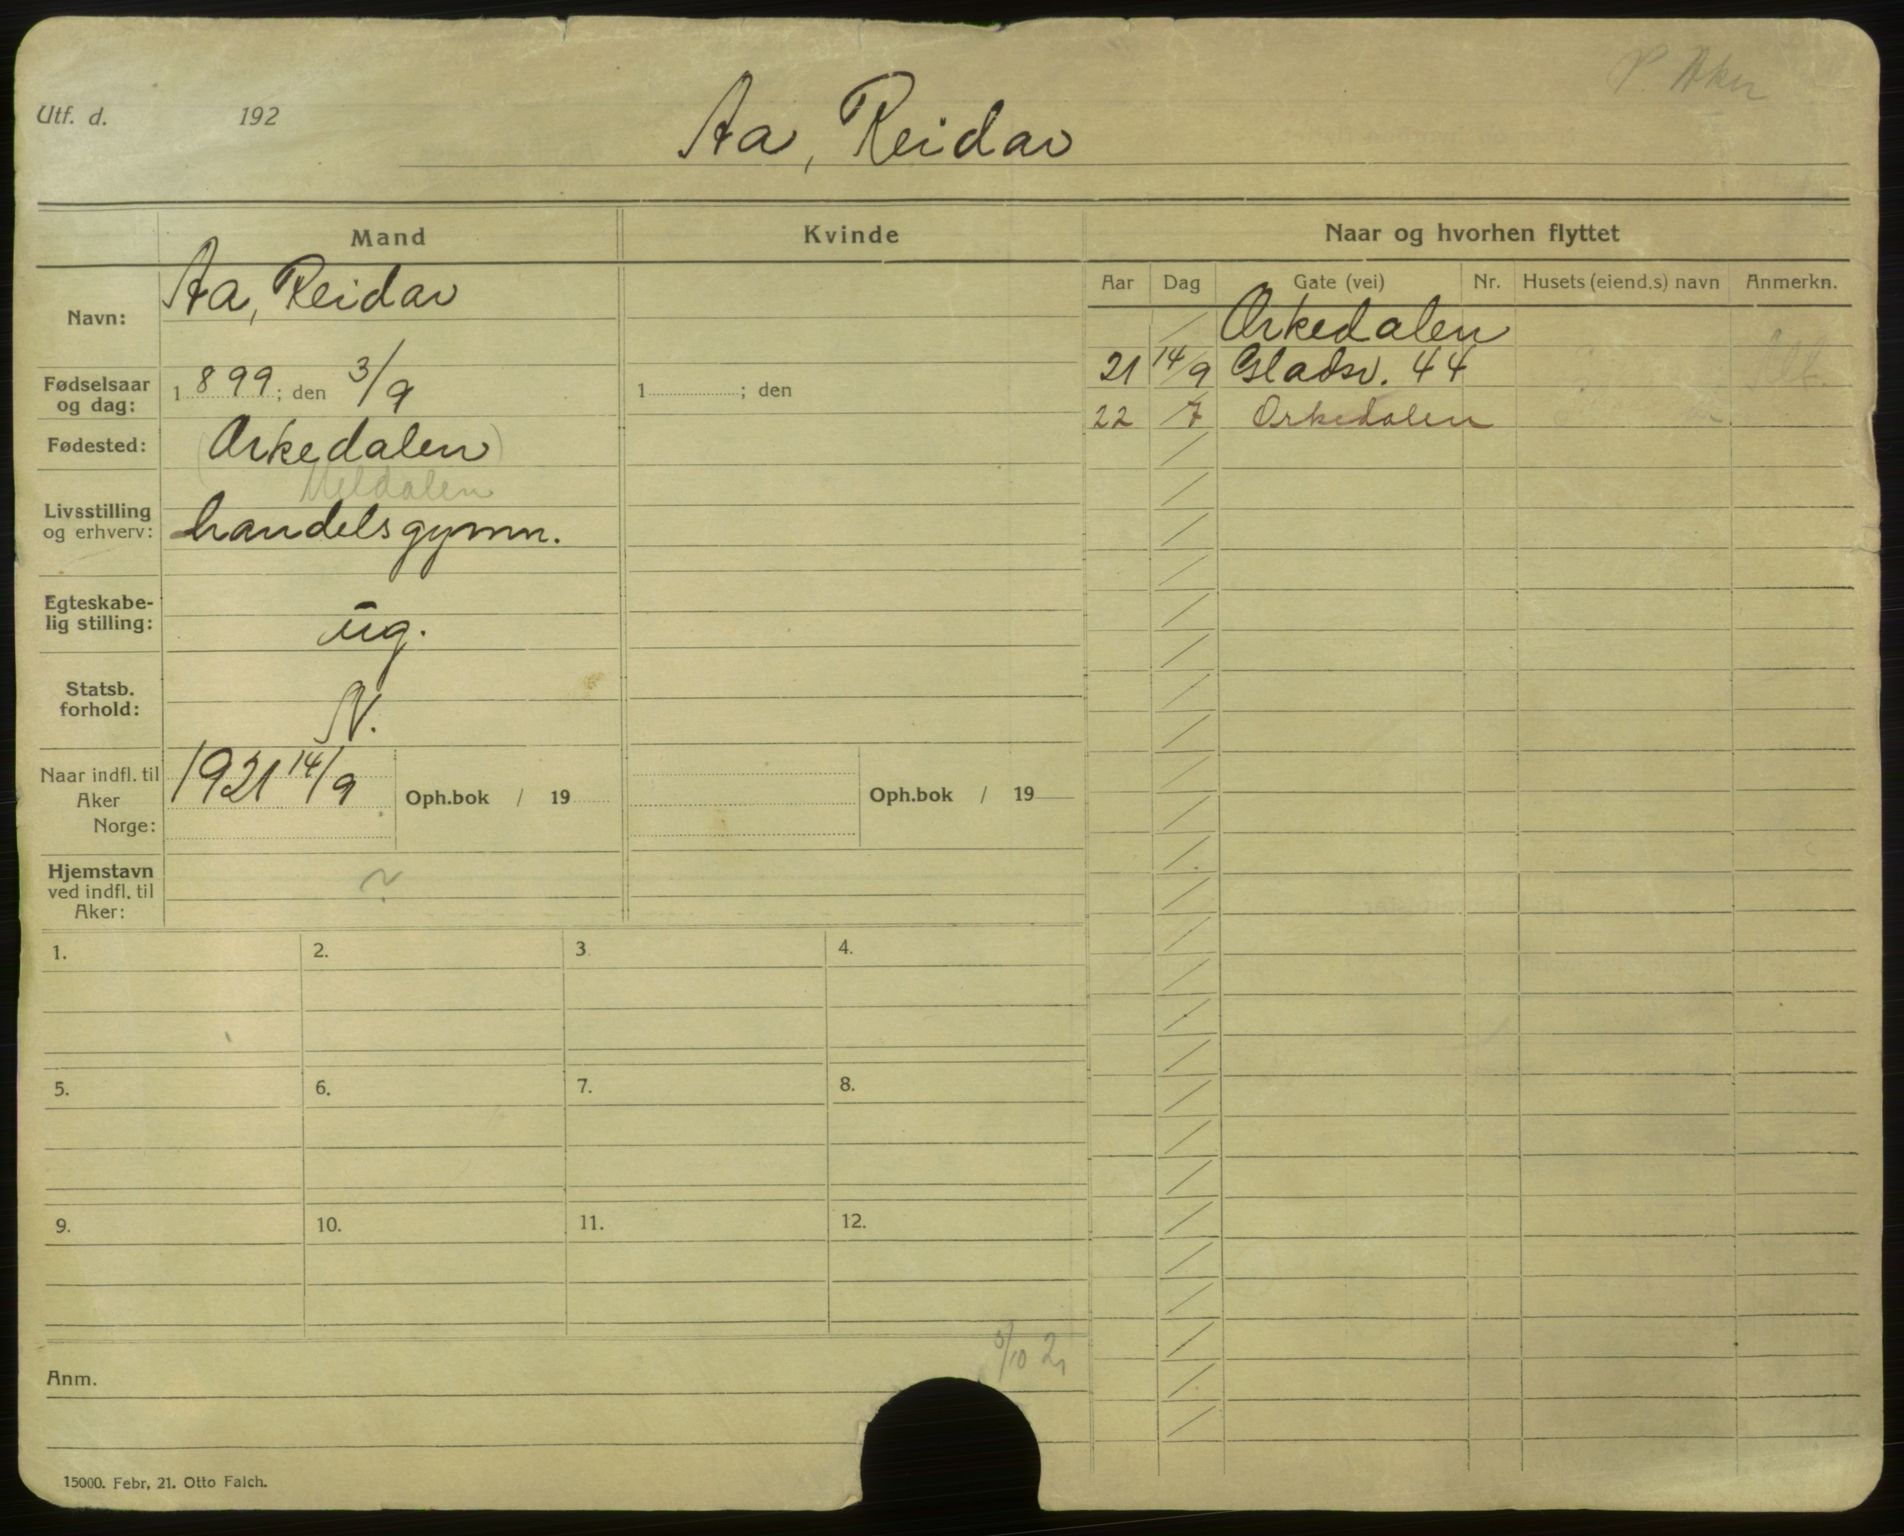 Utf. d. 192
Aa, Reidar
Mand Kvinde Naar og hvorhen flyttet
Aar Dag Gate (vei) Nr. Husets (eiend.s) navn Anmerkn.
Navn: Aa, Reidar
Fødselsaar og dag: 1899; den 3/9 1 ; den
Fødested: (Orkedalen)
Meldalen
Livsstilling og erhverv: handelsgymn.
Egteskabe-
lig stilling: ug.
Statsb.
forhold: N.
Naar indfl. til
Aker
Norge: 1921 14/9 Oph.bok / 19 Oph.bok / 19
Hjemstavn
ved indfl. til
Aker: ?
Orkedalen
21 14/9 Gladsv. 44
22 /7 Orkedalen
1. 2. 3. 4.
5. 6. 7. 8.
9. 10. 11. 12.
Anm.
15000. Febr, 21. Otto Falch.